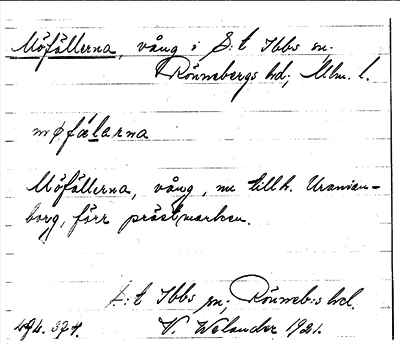 Möfällerna, vång i S:t Ibbs sn.
Rönnebergs hd; Mlm. l.
møfǽlarna
Möfällerna, vång, nu tillh. Uranien-
borg, förr prästmarken.
S:t Ibbs sn; Rönneb:s hd.
V. Welander 1921.